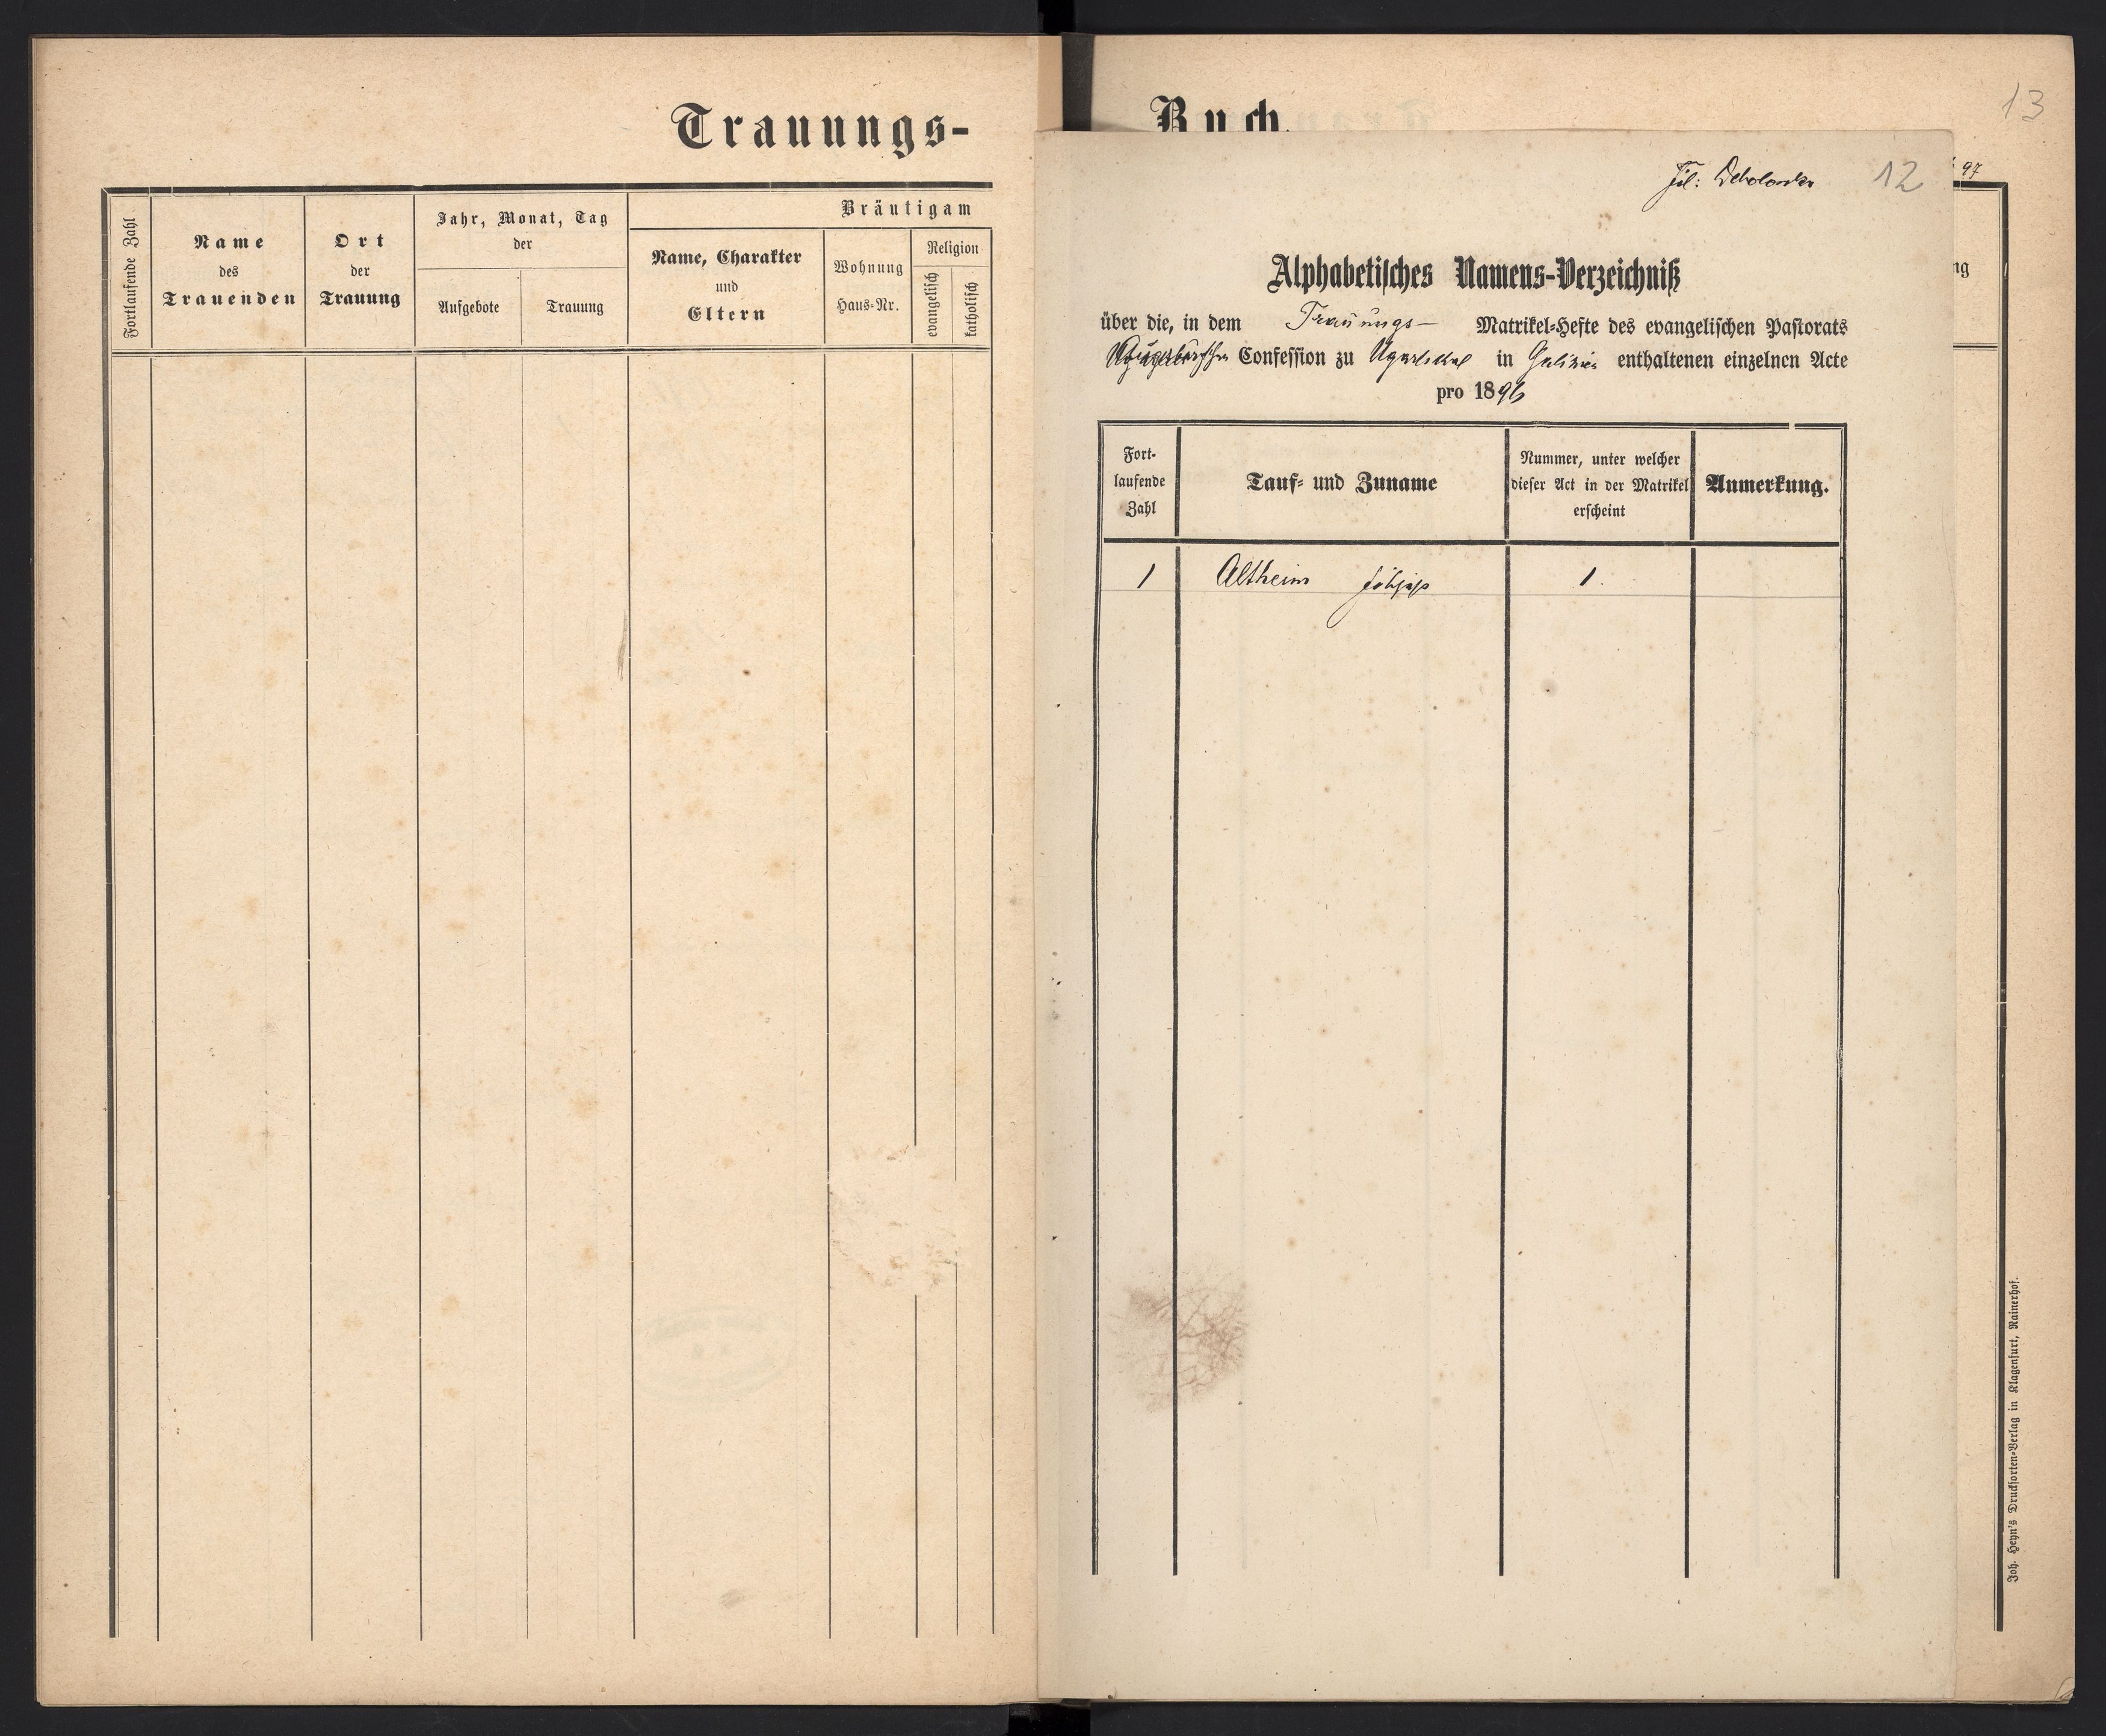 Trauungs-
Fortlaufende Zahl
Name
des
Trauenden
Ort
der
Trauung
Jahr, Monat, Tag
der
Aufgebote
Trauung
Bräutigam
Name, Charakter
und
Eltern
Wohnung
Haus-Nr.
Religion
evangelisch
katholisch
Buch.
13
97
ng
Fil:
12
Alphabetisches Namens-Verzeichniß
über die, in dem Trauungs- Matrikel-Hefte des evangelischen Pastorats
Confession zu in enthaltenen einzelnen Acte
pro 1896
Fort-
laufende
Zahl
Tauf- und Zuname
Nummer, unter welcher
dieser Act in der Matrikel
erscheint
Anmerkung.
1 Altheim 1.
Joh. Heyn's Drucksorten-Verlag in Klagenfurt, Rainerhof.